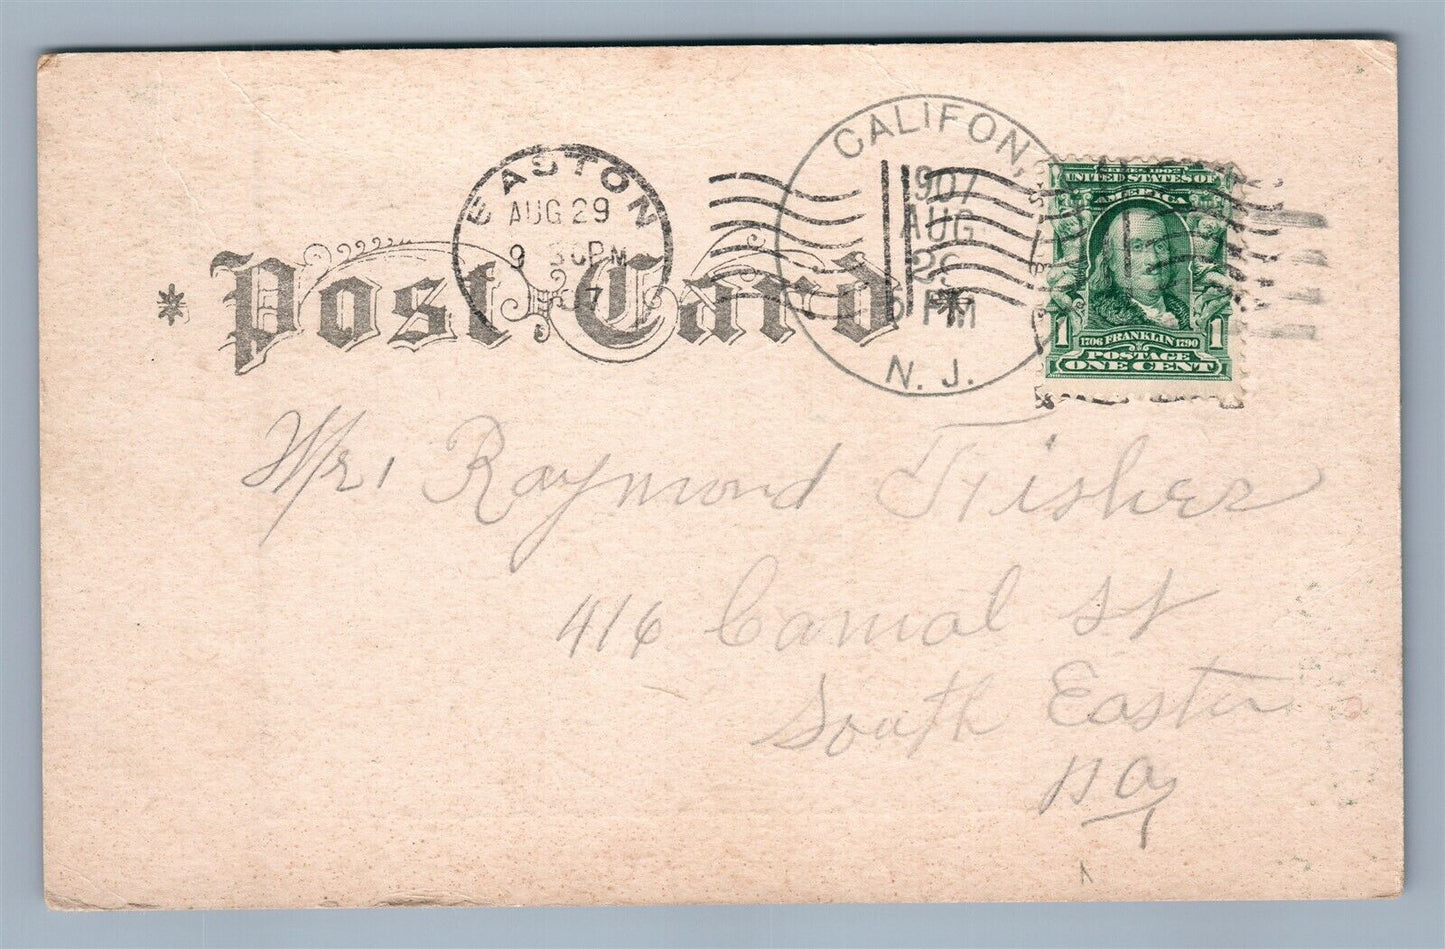 EASTON
AUG 29
9 30PM
CALIFON,
1907
AUG
PM
N. J.
SERIES 1902
UNITED STATES OF
AMERICA
1 1
1706 FRANKLIN 1790
POSTAGE
ONE CENT
* Post Card *
Mr. Raymond Fisher
416 Canal St
South Easton
Pa